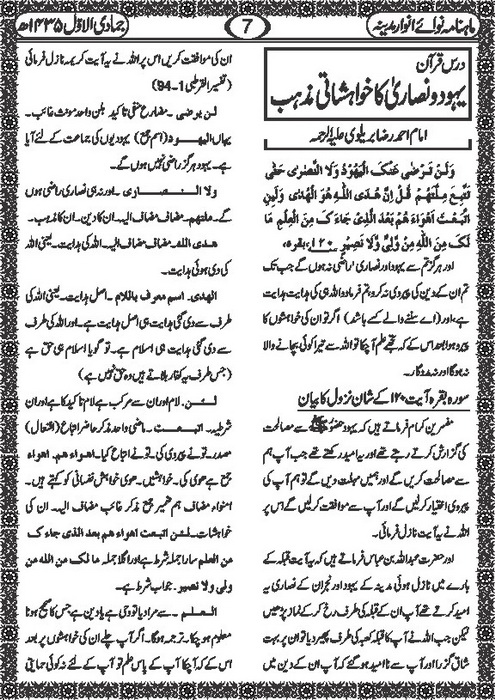 ماہنامہ نوائے انوار مدینہ
7
جمادی الاوّل ۱۴۳۵ھ
درس قرآن
یہود و نصاریٰ کا خواہشاتی مذہب
امام احمد رضا بریلوی علیہ الرحمہ
وَلَنْ تَرْضٰی عَنْکَ الْیَھُوْدُ وَلَا النَّصٰرٰی حَتّٰی
تَتَّبِعَ مِلَّتَھُمْ قُلْ اِنَّ ھُدَی اللّٰہِ ھُوَ الْھُدٰی وَلَئِنِ
اتَّبَعْتَ اَھْوَاءَ ھُمْ بَعْدَ الَّذِیْ جَاءَ کَ مِنَ الْعِلْمِ مَا
لَکَ مِنَ اللّٰہِ مِنْ وَّلِیٍّ وَّلَا نَصِیْرٍ ۱۲۰، بقرہ،
اور ہرگز تم سے یہود اور نصاریٰ راضی نہ ہوں گے جب تک
تم ان کے دین کی پیروی نہ کرو تم فرما دو اللہ ہی کی ہدایت ہدایت
ہے، اور (اے سننے والے کسے باشد) اگر تو ان کی خواہشوں کا
پیرو ہوا بعد اس کے کہ تجھے علم آچکا تو اللہ سے تیرا کوئی بچانے والا
نہ ہوگا اور نہ مددگار۔
سورہ بقرہ آیت ۱۲۰ کے شان نزول کا بیان
مفسرین کرام فرماتے ہیں کہ یہود حضور ﷺ سے مصالحت
کی گزارش کرتے رہتے تھے اور یہ امید رکھتے تھے جب آپ ہم
سے مصالحت کریں گے اور ہمیں مہلت دیں گے تو ہم آپ کی
پیروی اختیار کرلیں گے اور آپ سے موافقت کرلیں گے اس پر
اللہ نے یہ آیت نازل فرمائی۔
اور حضرت عبداللہ بن عباس فرماتے ہیں کہ یہ آیت قبلہ کے
بارے میں نازل ہوئی مدینہ کے یہود اور نجران کے نصاریٰ یہ
امید کرتے تھے آپ ان کے قبلہ کی طرف رخ کر کے نماز پڑھیں
لیکن جب اللہ نے آپ کا قبلہ کعبہ کی طرف پھیر دیا تو ان پر بہت
شاق گزرا اور آپ سے ناامید ہوگئے کہ آپ ان کے دین میں
ان کی موافقت کریں اس پر اللہ نے یہ آیت کریمہ نازل فرمائی
(تفسیر القرطبی 1-94)
لن ترضی۔ مضارع منفی تاکید بلن واحد مونث غائب۔
یہاں الیہود (اسم جمع) یہودیوں کی جماعت کے لئے آیا
ہے۔ یہود ہرگز راضی نہیں ہوں گے۔
ولا النصاری۔ اور نہ ہی نصاریٰ راضی ہوں
گے۔ ملتھم۔ مضاف مضاف الیہ۔ ان کا دین۔ ان کا مذہب۔
ھدی اللہ۔ مضاف مضاف الیہ۔ اللہ کی ہدایت۔ یعنی اللہ
کی دی ہوئی ہدایت۔
الھدی۔ اسم معرف باللام۔ اصل ہدایت۔ یعنی اللہ کی
طرف سے دی گئی ہدایت ہی اصل ہدایت ہے۔ اور اللہ کی طرف
سے دی گئی ہدایت ہی اسلام ہے۔ تو گویا اسلام ہی حق ہے
(جس طرف یہ کفار بلاتے ہیں وہ حق نہیں ہے)
لئن۔ لام اور ان سے مرکب ہے لام تاکید کا ہے اور ان
شرطیہ۔ اتبعت۔ ماضی واحد مذکر حاضر اتباع (افتعال)
مصدر۔ تونے پیروی کی۔ تونے اتباع کیا۔ اھواء ھم۔ اھواء
جمع ہے ھوی کی۔ خواہشیں۔ ھوی خواہش نفسانی کو کہتے ہیں۔
اھواء مضاف ھم ضمیر جمع مذکر غائب مضاف الیہ۔ ان کی
خواہشات۔ لئن اتبعت اھواء ھم بعد الذی جاء ک
من العلم سارا جملہ شرط ہے اور اگلا جملہ ما لک من اللہ من
ولی ولا نصیر۔ جواب شرط ہے۔
العلم۔ سے مراد یا تو وحی ہے یا دین ہے جس کا صحیح ہونا
معلوم ہوچکا۔ ترجمہ ہوگا۔ اگر آپ چلے ان کی خواہشوں پر بعد
اس کے کہ آچکا آپ کے پاس علم تو آپ کے لئے نہ کوئی حمایتی